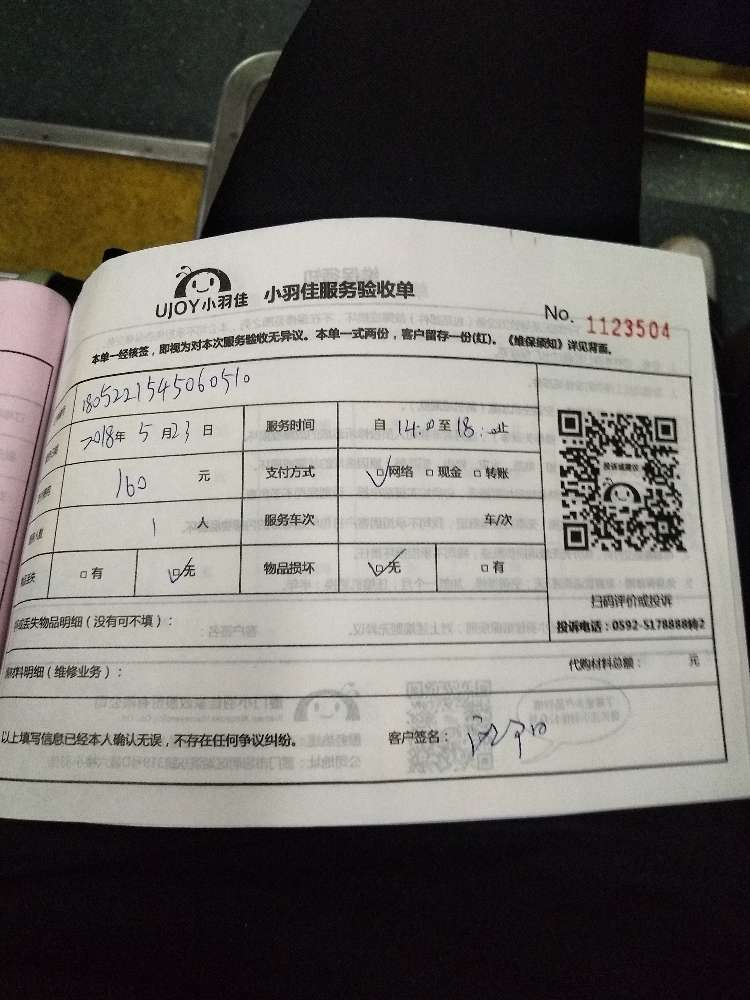 UJOY小羽佳 小羽佳服务验收单
No. 1123504
本单一经核签，即视为对本次服务验收无异议。本单一式两份，客户留存一份(红)。《维保须知》详见背面。
1805221545060510
2018年 5 月 23 日 服务时间 自 14:00 至 18: 止
160 元 支付方式 ☑网络 □现金 □转账
1 人 服务车次 车/次
□有 ☑无 物品损坏 ☑无 □有
投诉或建议
扫码评价或投诉
投诉电话：0592-5178888转2
丢失物品明细（没有可不填）：
材料明细（维修业务）： 代购材料总额： 元
以上填写信息已经本人确认无误，不存在任何争议纠纷。 客户签名：